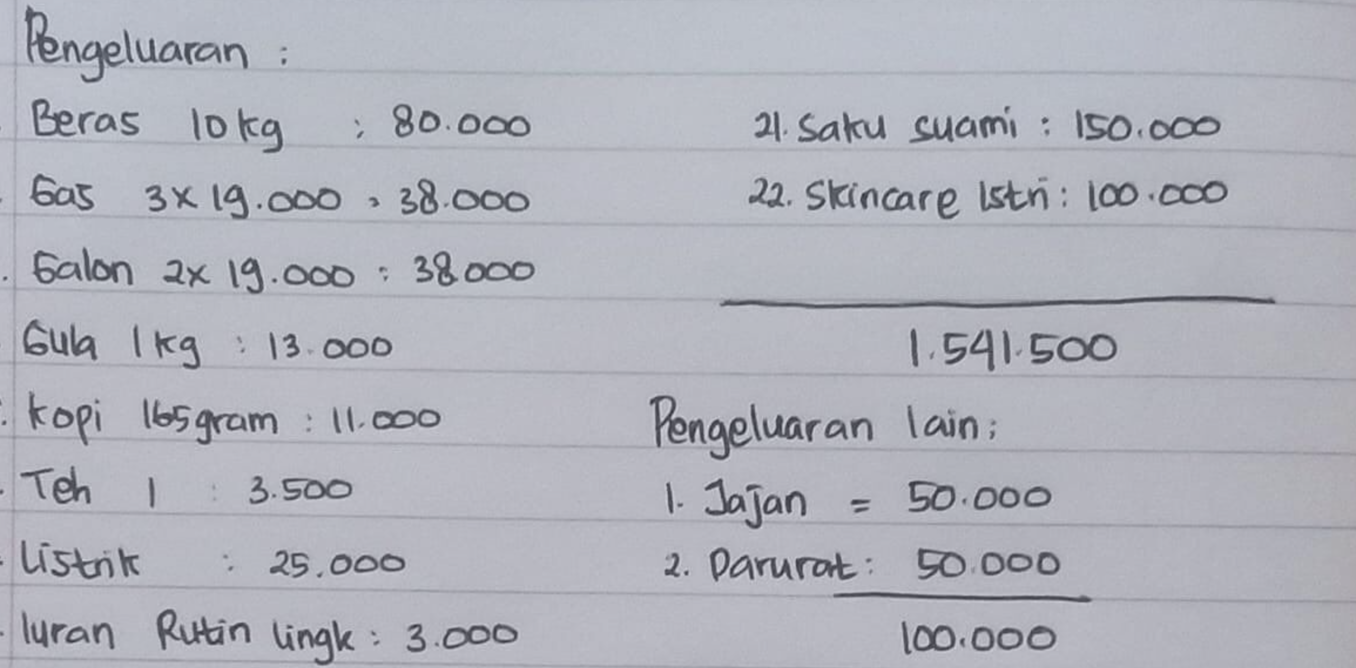 Pengeluaran :
Beras 10 kg : 80.000
Gas 3 x 19.000 : 38.000
Galon 2x 19.000 : 38.000
Gula 1 kg : 13.000
Kopi 165 gram : 11.000
Teh 1 : 3.500
Listrik : 25.000
Iuran Rutin lingk : 3.000
21. Saku suami : 150.000
22. Skincare Istri : 100.000
1.541.500
Pengeluaran lain :
1. Jajan = 50.000
2. Darurat : 50.000
100.000